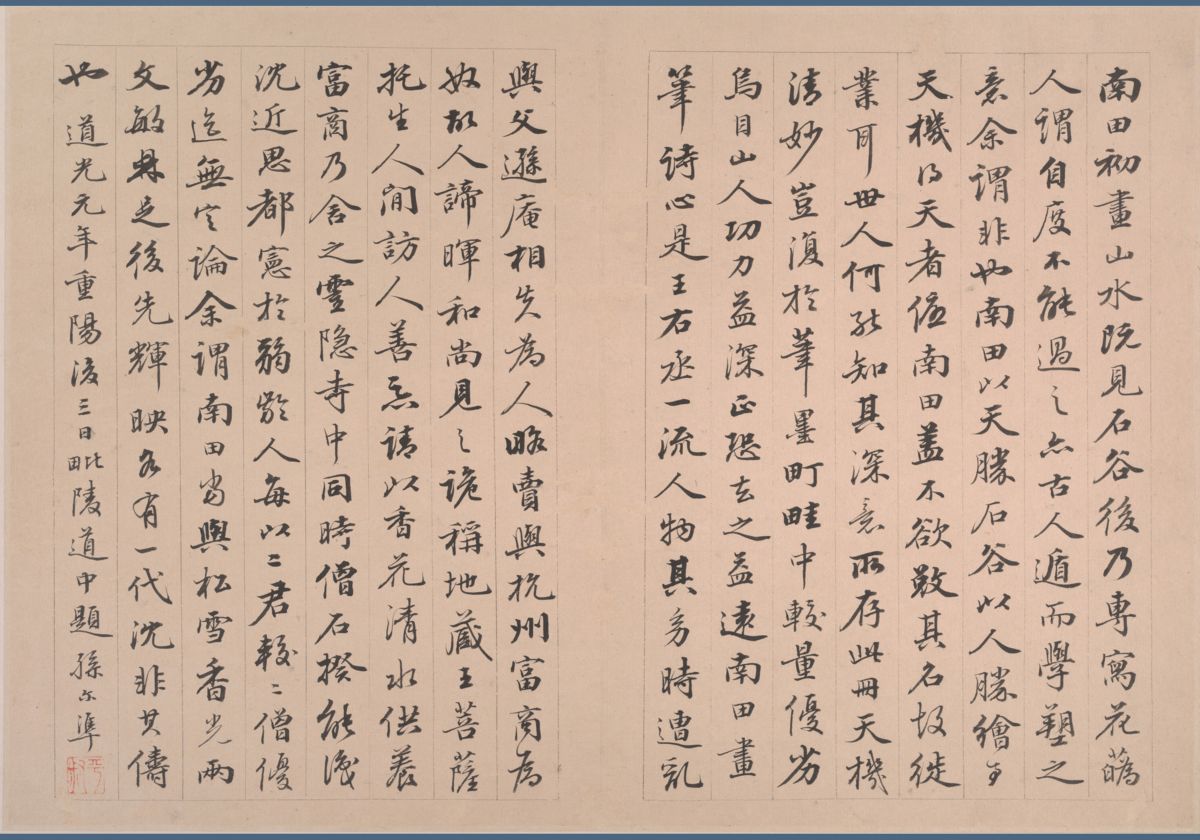 南田初畫山水既見石谷後乃專寫花蘤
人謂自度不能過之亦古人遁而學塑之
意余謂非也南田以天勝石谷以人勝繪事
天機得天者優南田蓋不欲斆其名故徙
業耳世人何能知其深意所存此冊天機
清妙豈復於筆墨町畦中較量優劣
烏目山人功力益深正恐去之益遠南田畫
筆詩心是王右丞一流人物其幼時遭亂
與父遜庵相失為人略賣與杭州富商為
奴故人諦暉和尚見之詭稱地藏王菩薩
托生人間訪人善惡請以香花清水供養
富商乃舍之靈隱寺中同時僧石揆能識
沈近思都憲於弱齡人每以二君較二僧優
劣迄無定論余謂南田當與松雪香光兩
文敏鼎足後先輝映各有一代沈非其儔
也 道光元年重陽後三日毗陵道中題 孫尔準
平叔